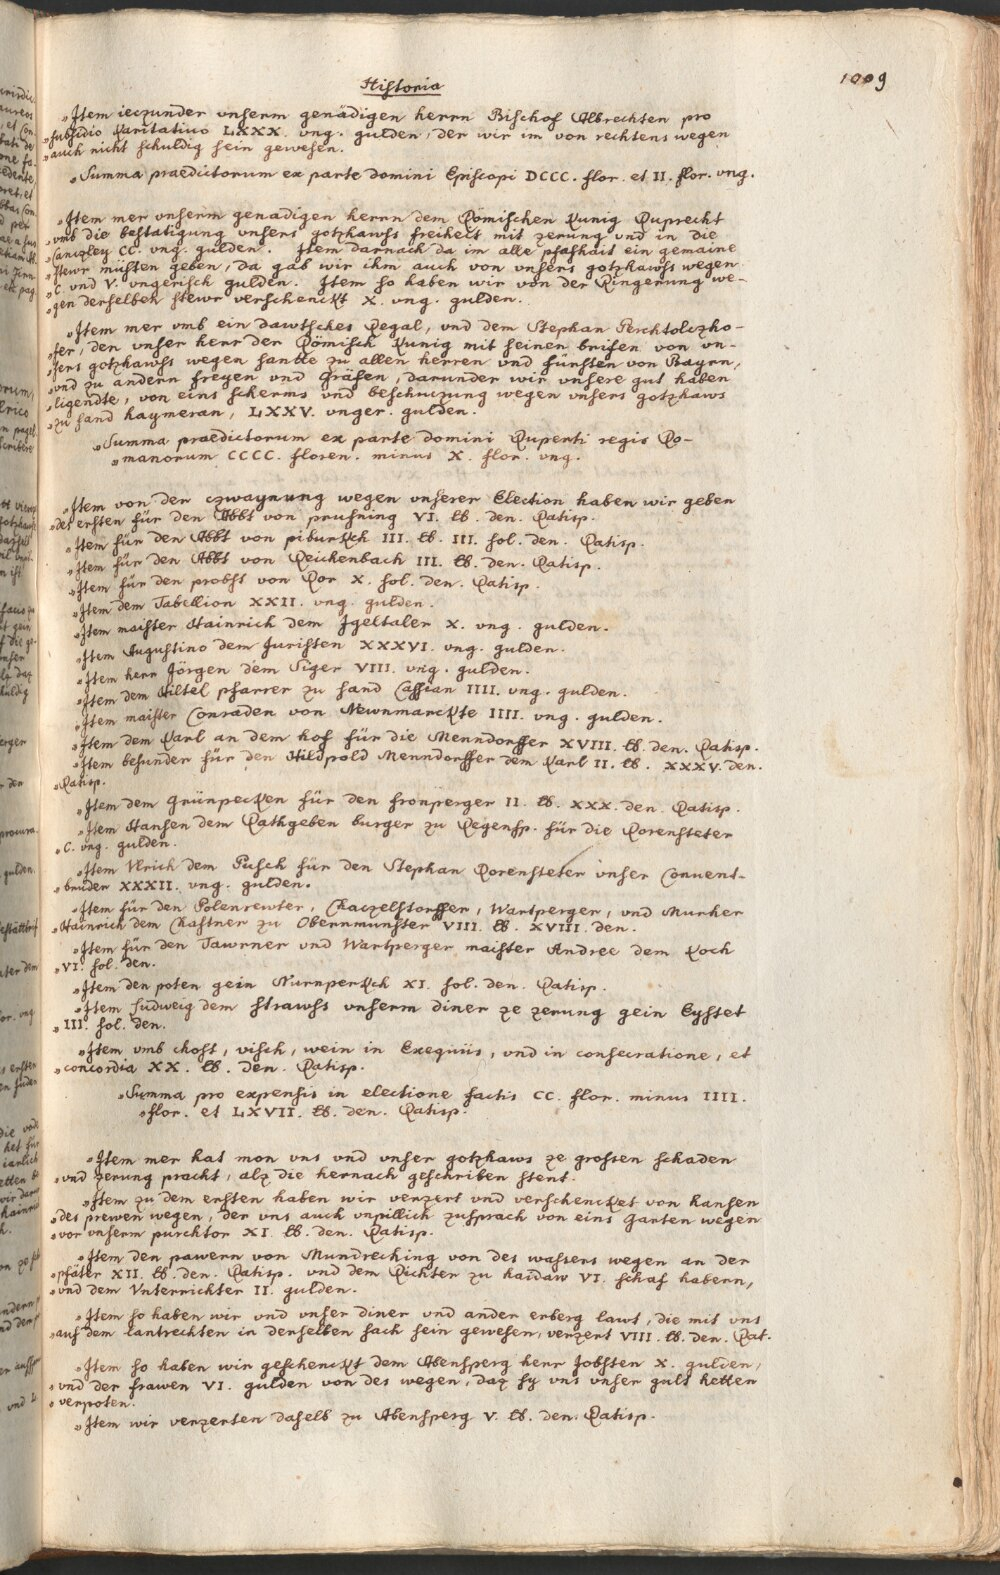 Historia
1009
„Item ieczunder vnserm genädigen herrn Bischof Albrechten pro
„subsidio karitativo LXXX. vng. gulden, der wir im von rechtens wegen
„auch nicht schuldig sein gewesen.
„Summa praedictorum ex parte domini Episcopi DCCC. flor. et II. flor. vng.
„Item mer vnserm genadigen herrn dem Römischen Kunig Ruprecht
„vmb die bestatigung vnsers gotzhawss freiheit mit zerung vnd in die
„Canczley CC. vng. gulden. Item darnach da im alle pfafhait ein gemaine
„stewr müsten geben, da gab wir ihm auch von vnsers gotzhawss wegen
„C. vnd V. vngerisch gulden. Item so haben wir von der Ringerung we-
„gen derselben stewr verschenckt X. vng. gulden.
„Item mer vmb ein dawtsches Regal, vnd dem Stephan Perchtolczho-
„fer, den vnser herr der Römisch Kunig mit seinen brifen von vn-
„sers gotzhawss wegen santte zu allen herren vnd fürsten von Bayrn,
„vnd zu andern freyen vnd Gräfen, darunder wir vnsere gut haben
„ligendte, von eins scherms vnd beschuczung wegen vnsers gotzhaws
„zu sand haymeran, LXXV. vnger. gulden.
„Summa praedictorum ex parte domini Ruperti regis Ro-
„manorum CCCC. floren. minus X. flor. vng.
„Item von der czwaynung wegen vnserer Election haben wir geben
„des ersten für den Abbt von prufning VI. lb. den. Ratisp.
„Item für den Abbt von piburckh III. lb. III. sol. den. Ratisp.
„Item für den Abbt von Reichenbach III. lb. den. Ratisp.
„Item für den probst von Ror X. sol. den. Ratisp.
„Item dem Tabellion XXII. vng. gulden.
„Item maister Hainrich dem Igeltaler X. vng. gulden.
„Item Augustino dem Juristen XXXVI. vng. gulden.
„Item herr Jörgen dem Siger VIII. vng. gulden.
„Item dem Hiltel pfarrer zu sand Cassian IIII. vng. gulden.
„Item maister Conraden von Newnmarckte IIII. vng. gulden.
„Item dem Karl an dem hof für die Menndorffer XVIII. lb. den. Ratisp.
„Item besunder für den Hildpold Menndorffer dem Karl II. lb. XXXV. den.
„Ratisp.
„Item dem Grünpecken für den fronperger II. lb. XXX. den. Ratisp.
„Item Hansen dem Rathgeben burger zu Regensp. für die Rorensteter
„C. vng. gulden.
„Item Vlrich dem Pusch für den Stephan Rorensteter vnser Convent-
„bruder XXXII. vng. gulden.
„Item für den Polenrewter, Chaczelstorffer, Wartperger, vnd Murher
„Hainrich dem Chastner zu Obernmunster VIII. lb. XVIII. den.
„Item für den Tawrner vnd Wartperger maister Andree dem Koch
„VI. sol. den.
„Item den poten gein Nurnperckh XI. sol. den. Ratisp.
„Item Ludweig dem strawss vnserm diner ze zerung gein Eystet
„III. sol. den.
„Item vmb chost, visch, wein in Exequiis, vnd in consecratione, et
„concordia XX. lb. den. Ratisp.
„Summa pro expensis in electione factis CC. flor. minus IIII.
„flor. et LXVII. lb. den. Ratisp.
„Item mer hat mon vns vnd vnser gotzhaws ze grossen schaden
„vnd zerung pracht, alz die hernach geschriben stent.
„Item zu dem ersten haben wir verzert vnd verschencket von hansen
„des prewen wegen, der vns auch vnpillich zusprach von eins garten wegen
„vor vnserm purchtor XI. lb. den. Ratisp.
„Item den pawern von Mundreching von des wassers wegen an der
„pfäter XII. lb. den. Ratisp. vnd dem Richter zu haidaw VI. schaf habern,
„vnd dem Vnterrichter II. gulden.
„Item so haben wir vnd vnser diner vnd ander erberg lawt, die mit vns
„auf dem lantrechten in derselben sach sein gewesen, verzert VIII. lb. den. Rat.
„Item so haben wir geschenckt dem Abensperg herr Jobsten X. gulden,
„vnd der frawen VI. gulden von des wegen, daz sy vns vnser gült hetten
„verpoten.
„Item wir verzerten daselb zu Abensperg V. lb. den. Ratisp.